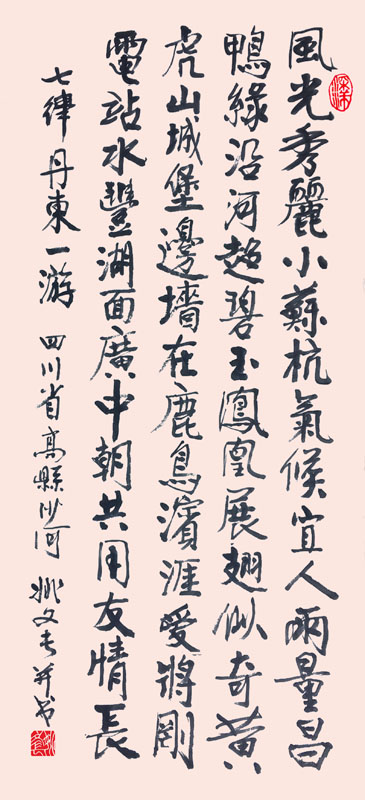 風光秀麗小蘇杭氣候宜人雨量昌
鴨緣沿河超碧玉鳳凰展翅似奇黄
虎山城堡邊墻在鹿鳥濱涯愛將剛
電站水豐湖面廣中朝共用友情長
七律丹東一游 四川省高縣沙河 姚文 并书